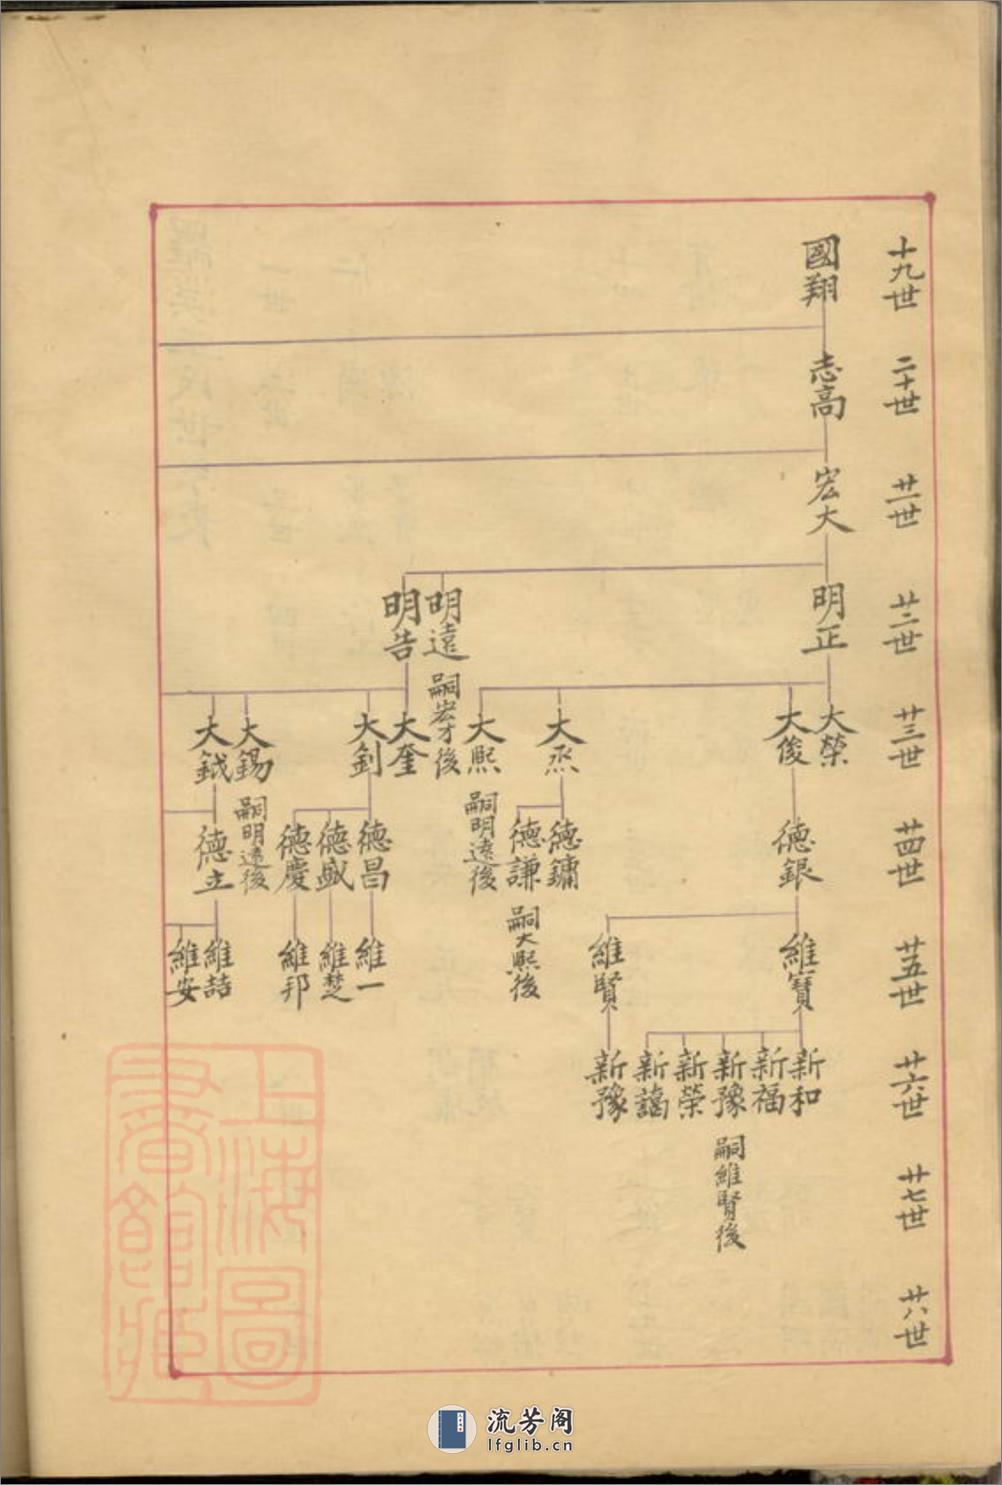 十九世
二十世
廿一世
廿二世
廿三世
廿四世
廿五世
廿六世
廿七世
廿八世
國翔
志高
宏大
明正
大榮
大俊
德銀
維寶
新和
新福
新豫
嗣維賢後
新榮
新謁
維賢
新豫
大烝
德鏞
德謙
嗣大熙後
大熙
嗣明遠後
明遠
嗣宏才後
明告
大奎
大釗
德昌
維一
德盛
維楚
德慶
維邦
大錫
嗣明遠後
大鉞
德立
維喆
維安
上海圖
書館藏
流芳阁
lfglib.cn